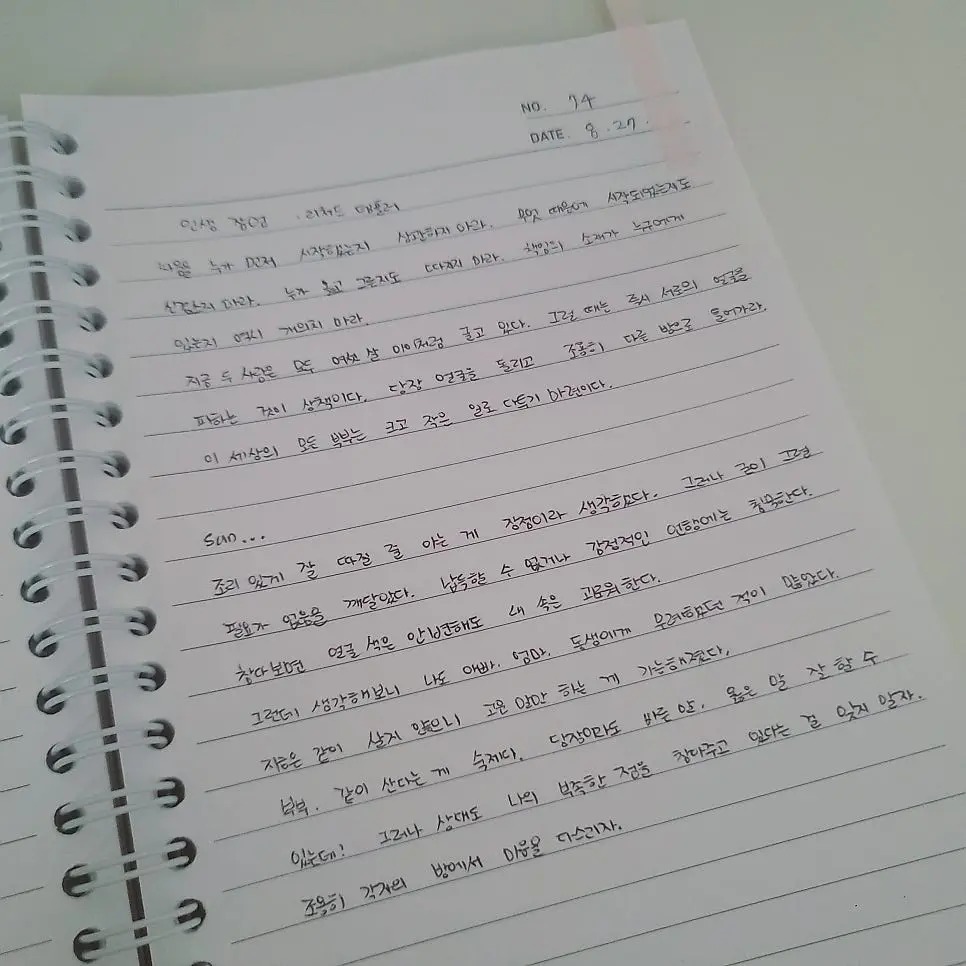 NO. 74
DATE. 8. 27.
인생 잠언 : 리처드 템플러
싸움을 누가 먼저 시작했는지 상관하지 마라. 무엇 때문에 시작되었는지도
신경쓰지 마라. 누가 옳고 그른지도 따지지 마라. 책임의 소재가 누구에게
있는지 역시 개의치 마라.
지금 두 사람은 모두 여섯 살 아이처럼 굴고 있다. 그럴 때는 즉시 서로의 얼굴을
피하는 것이 상책이다. 당장 얼굴을 돌리고 조용히 다른 방으로 들어가라.
이 세상의 모든 부부는 크고 작은 일로 다투기 마련이다.
sun...
조리 있게 잘 따질 줄 아는 게 장점이라 생각했다. 그러나 굳이 그럴
필요가 없음을 깨달았다. 납득할 수 없거나 감정적인 언행에는 침묵한다.
참다보면 얼굴 색은 안변해도 내 속은 고요워한다.
그런데 생각해보니 나도 아빠. 엄마. 동생에게 무례했던 적이 많았다.
지금은 같이 살지 않으니 고운 말만 하는 게 가능해졌다.
부부. 같이 산다는 게 숙제다. 당장이라도 바른 말, 옳은 말 잘 할 수
있는데! 그러나 상대도 나의 부족한 점을 참아주고 있다는 걸 잊지 말자.
조용히 각자의 방에서 마음을 다스리자.